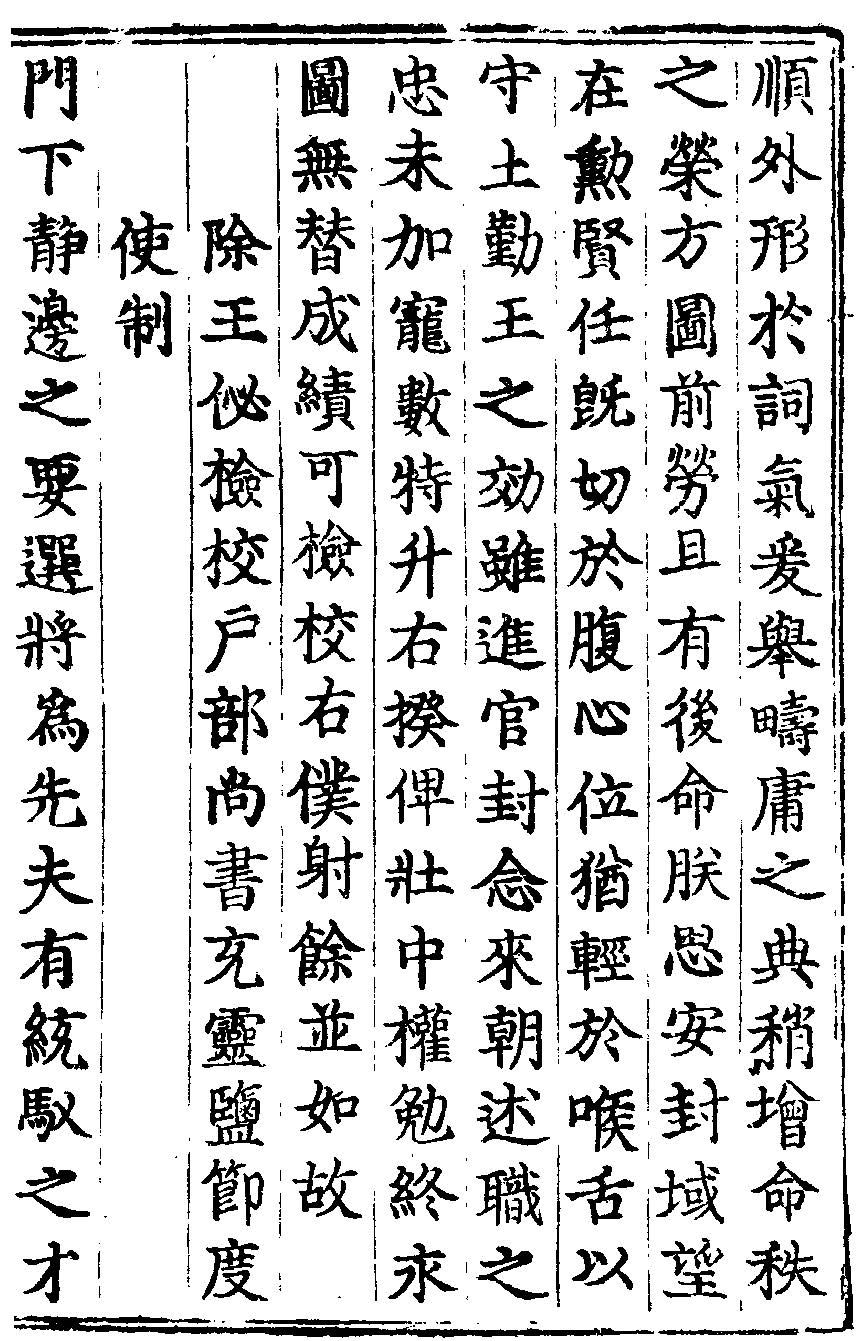 順外形於詞氣爰舉疇庸之典稍增命秩
之榮方圖前勞且有後命朕思安封域望
在勲賢任旣切於腹心位猶輕於喉舌以
守土勤王之効雖進官封念來朝述職之
忠未加寵數特升右揆俾壯中權勉終永
圖無替成績可檢校右僕射餘並如故
除王佖檢校戶部尚書充靈鹽節度
使制
門下静邊之要選將爲先夫有統馭之才